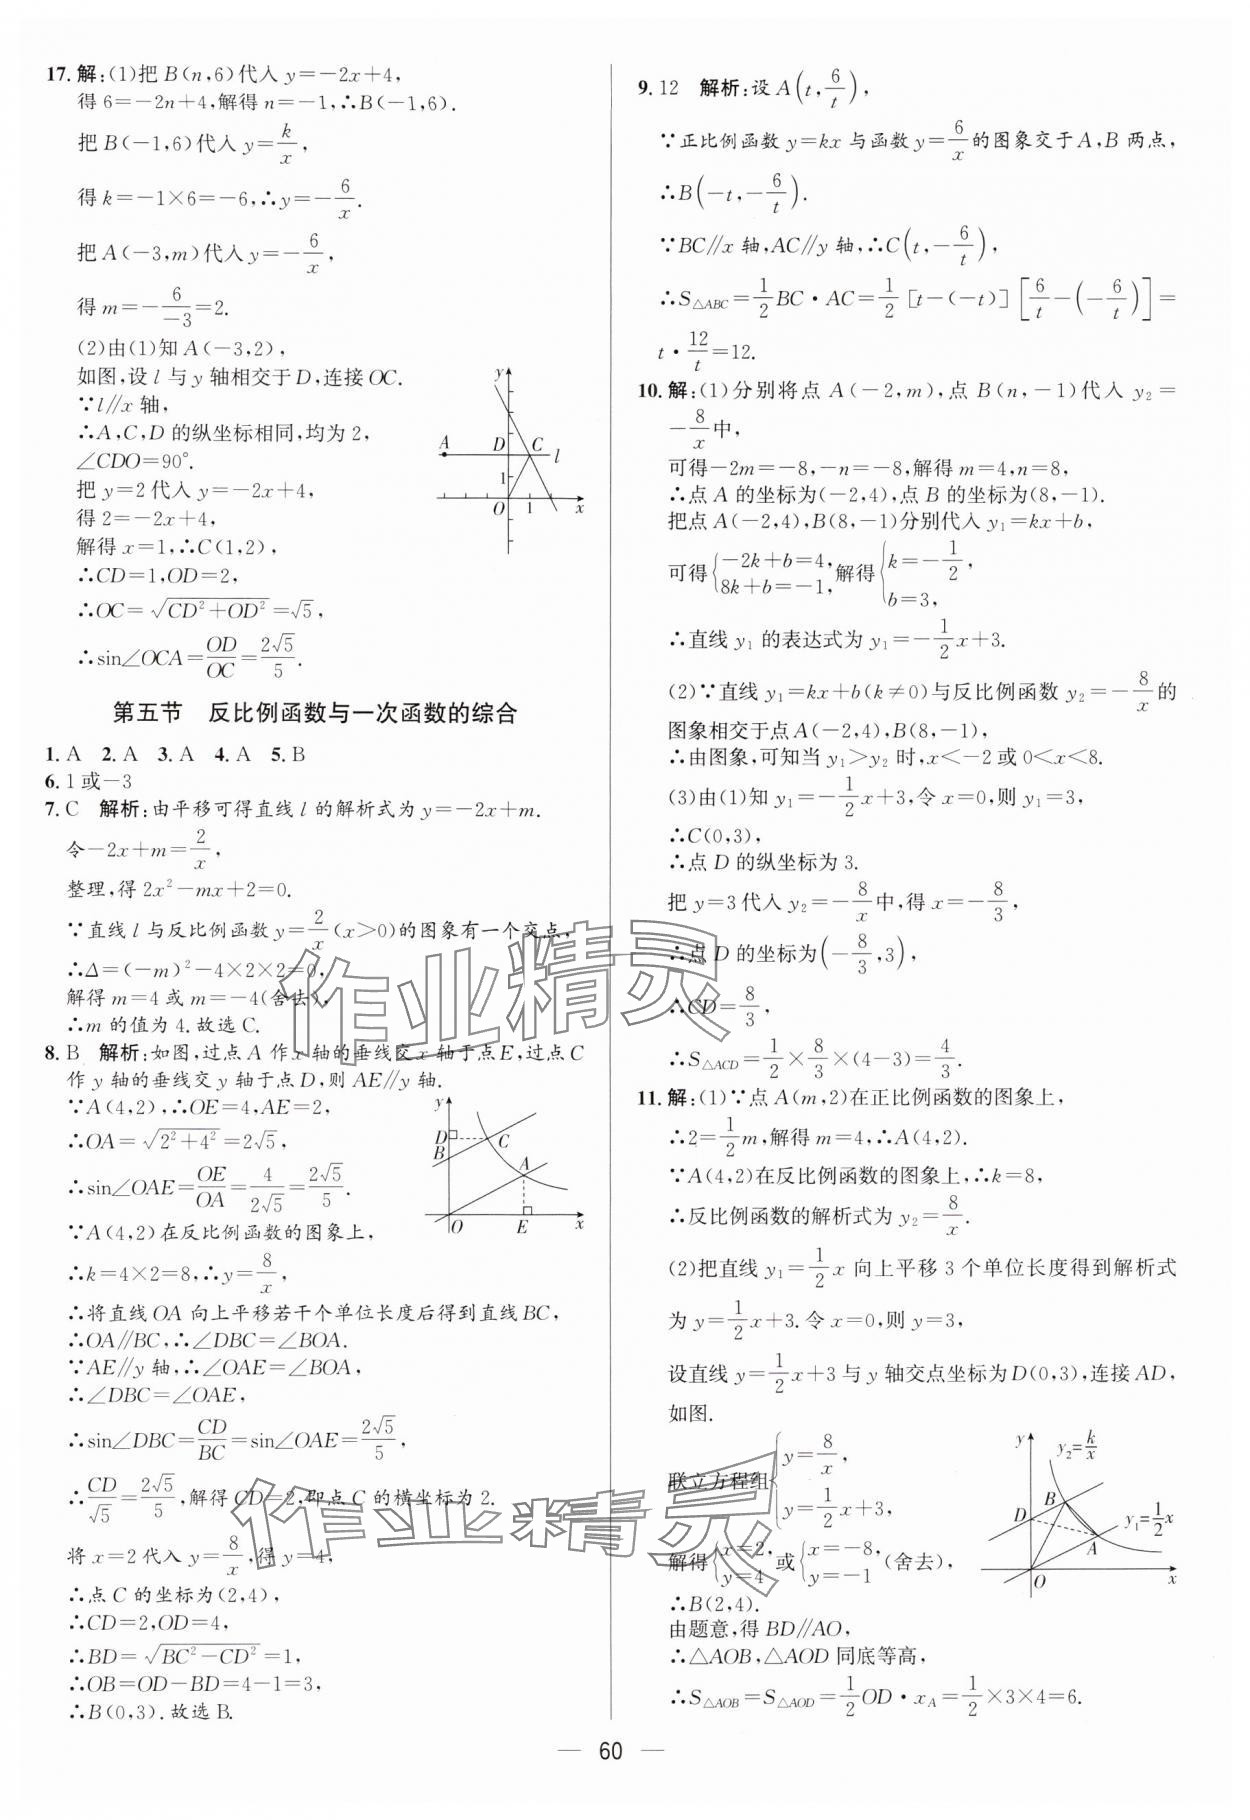 17. 解:(1)把 B(n,6)代入 y=-2x+4,
得 6=-2n+4,解得 n=-1,∴B(-1,6).
把 B(-1,6)代入 y=k/x,
得 k=-1×6=-6,∴y=-6/x.
把 A(-3,m)代入 y=-6/x,
得 m=-6/-3=2.
(2)由(1)知 A(-3,2),
如图,设 l 与 y 轴相交于 D,连接 OC.
∵l∥x 轴,
∴A,C,D 的纵坐标相同,均为 2,
∠CDO=90°.
把 y=2代入 y=-2x+4,
得 2=-2x+4,
解得 x=1,∴C(1,2),
∴CD=1,OD=2,
∴OC=√(CD²+OD²)=√5,
∴sin∠OCA=OD/OC=2√5/5.
y
A D C l
1
O 1 x
第五节 反比例函数与一次函数的综合
1. A 2. A 3. A 4. A 5. B
6. 1 或-3
7. C 解析:由平移可得直线 l 的解析式为 y=-2x+m.
令-2x+m=2/x,
整理,得 2x²-mx+2=0.
∵直线 l 与反比例函数 y=2/x(x>0)的图象有一个交点,
∴Δ=(-m)²-4×2×2=0,
解得 m=4 或 m=-4(舍去),
∴m 的值为 4.故选 C.
8. B 解析:如图,过点 A 作 x 轴的垂线交 x 轴于点 E,过点 C
作 y 轴的垂线交 y 轴于点 D,则 AE∥y 轴.
∵A(4,2),∴OE=4,AE=2,
∴OA=√(2²+4²)=2√5,
∴sin∠OAE=OE/OA=4/2√5=2√5/5.
∵A(4,2)在反比例函数的图象上,
∴k=4×2=8,∴y=8/x,
∴将直线 OA 向上平移若干个单位长度后得到直线 BC,
∴OA∥BC,∴∠DBC=∠BOA.
∵AE∥y 轴,∴∠OAE=∠BOA,
∴∠DBC=∠OAE,
∴sin∠DBC=CD/BC=sin∠OAE=2√5/5,
∴CD/√5=2√5/5,解得 CD=2,即点 C 的横坐标为 2.
将 x=2 代入 y=8/x,得 y=4,
∴点 C 的坐标为(2,4),
∴CD=2,OD=4,
∴BD=√(BC²-CD²)=1,
∴OB=OD-BD=4-1=3,
∴B(0,3).故选 B.
y
D
B C
A
O E x
9. 12 解析:设 A(t,6/t),
∵正比例函数 y=kx 与函数 y=6/x的图象交于 A,B 两点,
∴B(-t,-6/t).
∵BC∥x 轴,AC∥y 轴,∴C(t,-6/t),
∴S△ABC=1/2 BC·AC=1/2 [t-(-t)][6/t-(-6/t)]=
t·12/t=12.
10. 解:(1)分别将点 A(-2,m),点 B(n,-1)代入 y₂=
-8/x中,
可得-2m=-8,-n=-8,解得 m=4,n=8,
∴点 A 的坐标为(-2,4),点 B 的坐标为(8,-1).
把点 A(-2,4),B(8,-1)分别代入 y₁=kx+b,
可得{-2k+b=4, 8k+b=-1,解得{k=-1/2, b=3,
∴直线 y₁ 的表达式为 y₁=-1/2x+3.
(2)∵直线 y₁=kx+b(k≠0)与反比例函数 y₂=-8/x的
图象相交于点 A(-2,4),B(8,-1),
∴由图象,可知当 y₁>y₂ 时,x<-2 或 0<x<8.
(3)由(1)知 y₁=-1/2x+3,令 x=0,则 y₁=3,
∴C(0,3),
∴点 D 的纵坐标为 3.
把 y=3代入 y₂=-8/x中,得 x=-8/3,
∴点 D 的坐标为(-8/3,3),
∴CD=8/3,
∴S△ACD=1/2×8/3×(4-3)=4/3.
11. 解:(1)∵点 A(m,2)在正比例函数的图象上,
∴2=1/2m,解得 m=4,∴A(4,2).
∵A(4,2)在反比例函数的图象上,∴k=8,
∴反比例函数的解析式为 y₂=8/x.
(2)把直线 y₁=1/2x 向上平移 3 个单位长度得到解析式
为 y=1/2x+3.令 x=0,则 y=3,
设直线 y=1/2x+3 与 y 轴交点坐标为 D(0,3),连接 AD,
如图.
联立方程组{y=8/x, y=1/2x+3,
解得{x=2, y=4或{x=-8, y=-1(舍去),
∴B(2,4).
由题意,得 BD∥AO,
∴△AOB,△AOD 同底等高,
∴S△AOB=S△AOD=1/2OD·x_A=1/2×3×4=6.
y y₂=k/x
B
D y₁=1/2x
A
O x
作业精灵
作业精灵
— 60 —